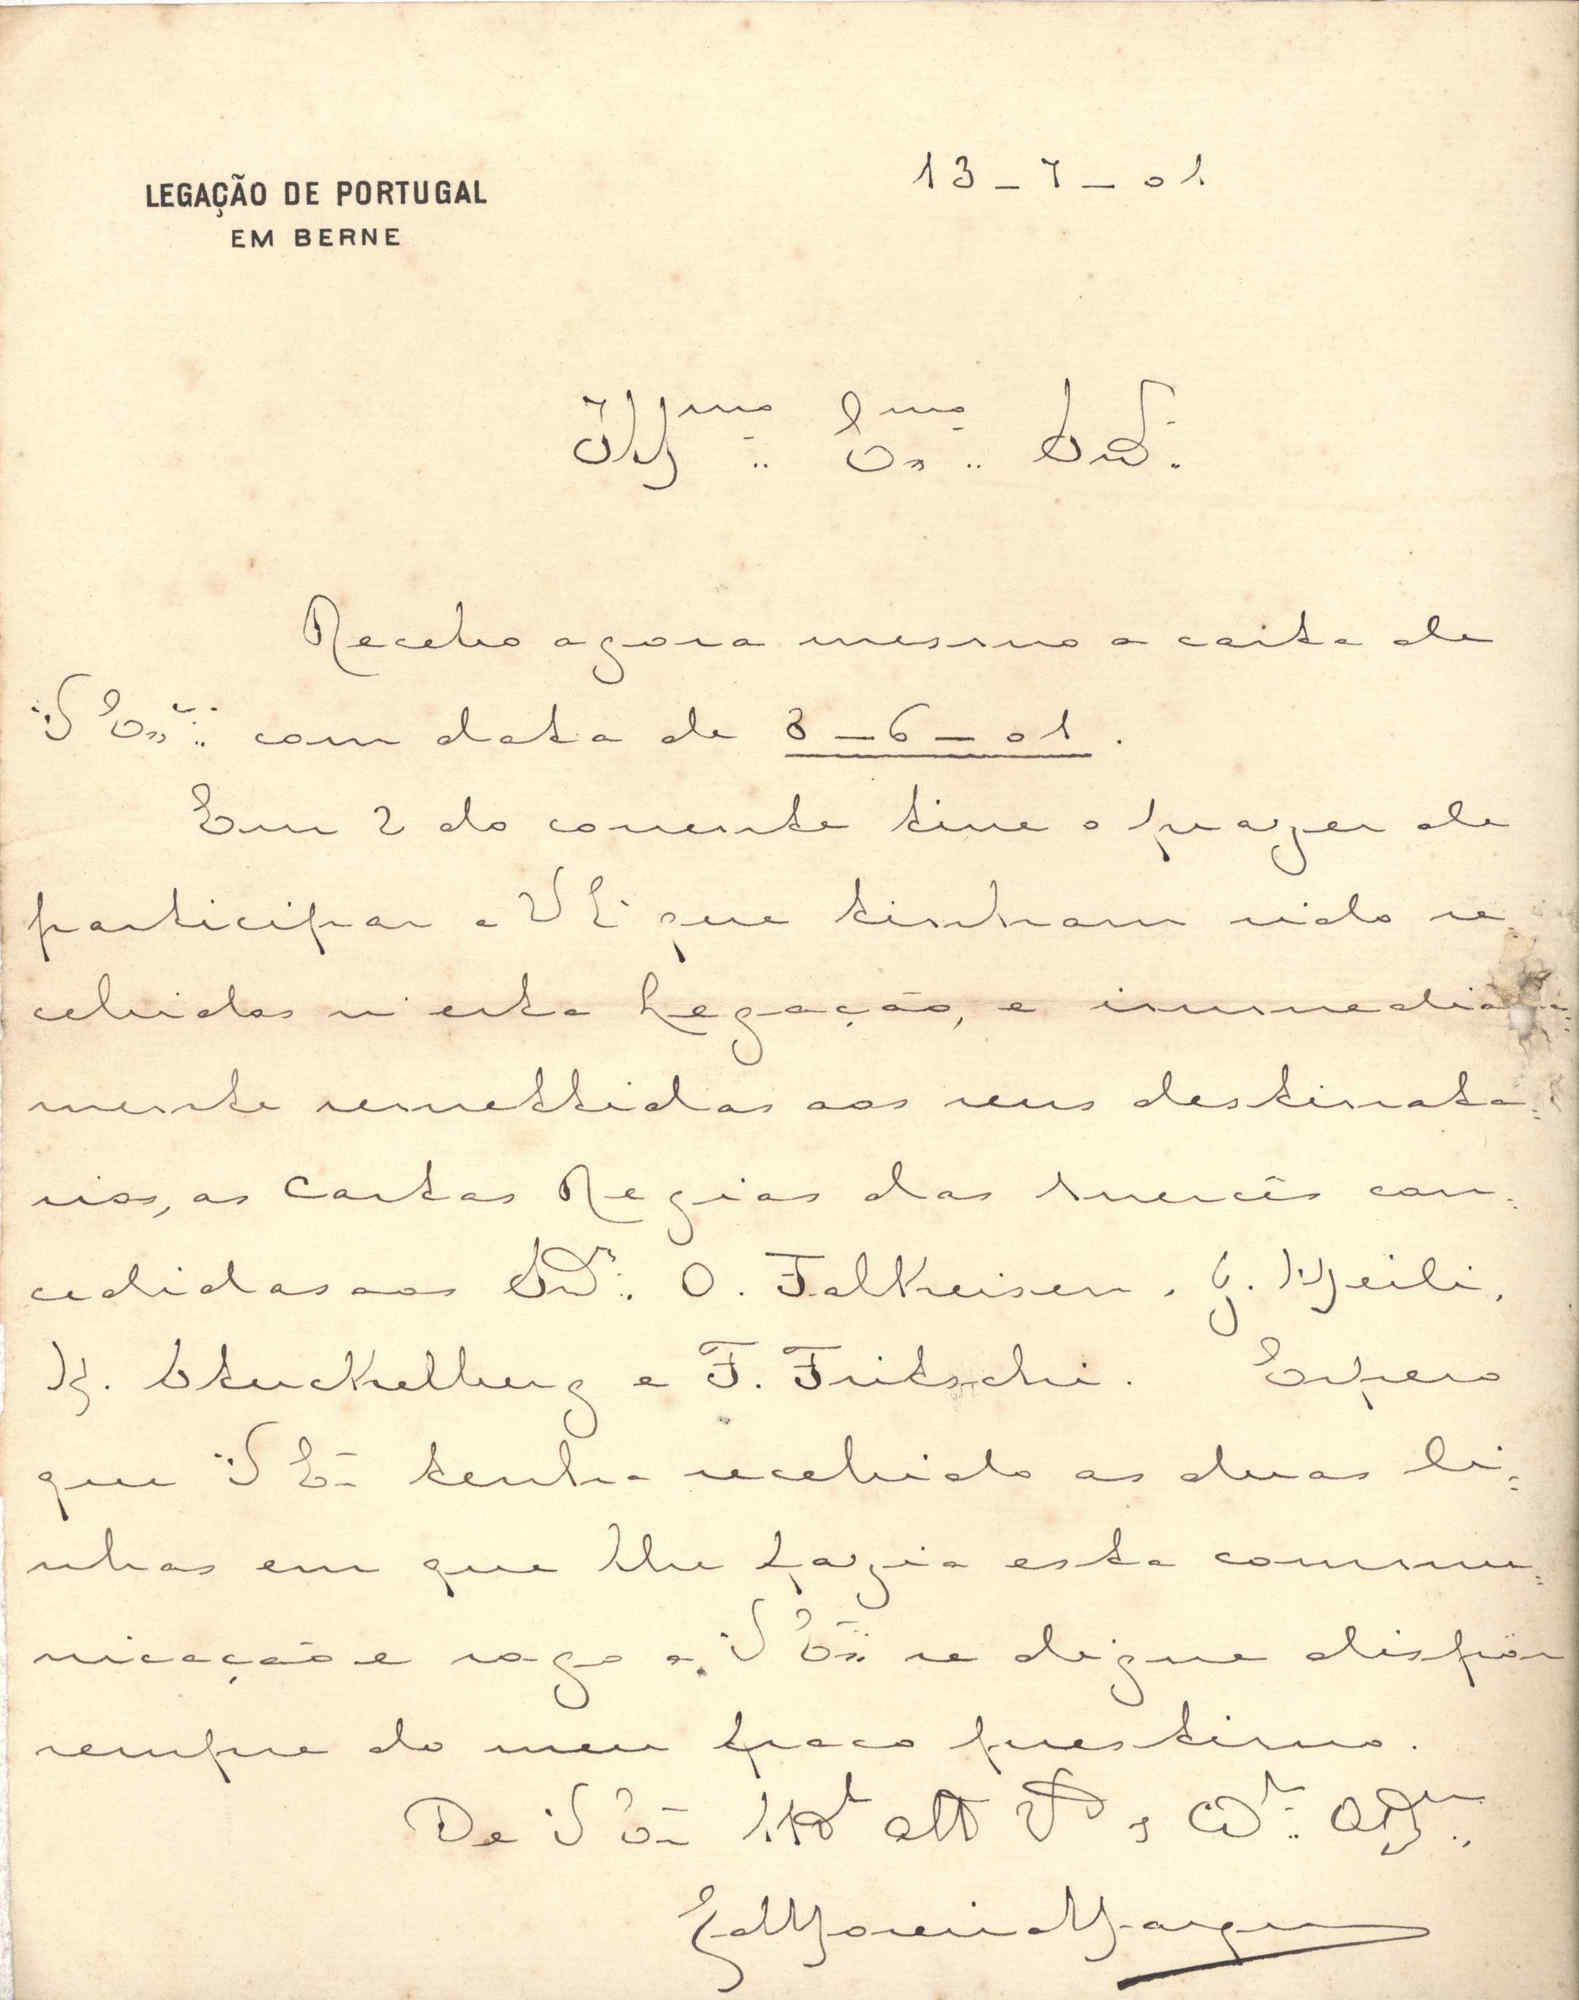 LEGAÇÃO DE PORTUGAL
EM BERNE
13-7-01.
Ill.mo Ex.mo Sr.
Recebo agora mesmo a carta de
V Ex.ª com data de 3-6-01.
Em 2 do corrente tive o prazer de
participar a V E. que tinham sido re-
cebidas n'esta Legação, e immediata-
mente remettidas aos seus destinata-
rios, as Cartas Regias das mercês con-
cedidas aos Srs. O. Falkeisen, J. Meili,
H. Stuckelberg e F. Fritschi. Espero
que V Ex.ª tenha recebido as duas li-
nhas em que lhe fazia esta commu-
nicação e rogo a V Ex.ª se digne dispôr
sempre do meu fraco prestimo.
De V Ex.ª att V.or e